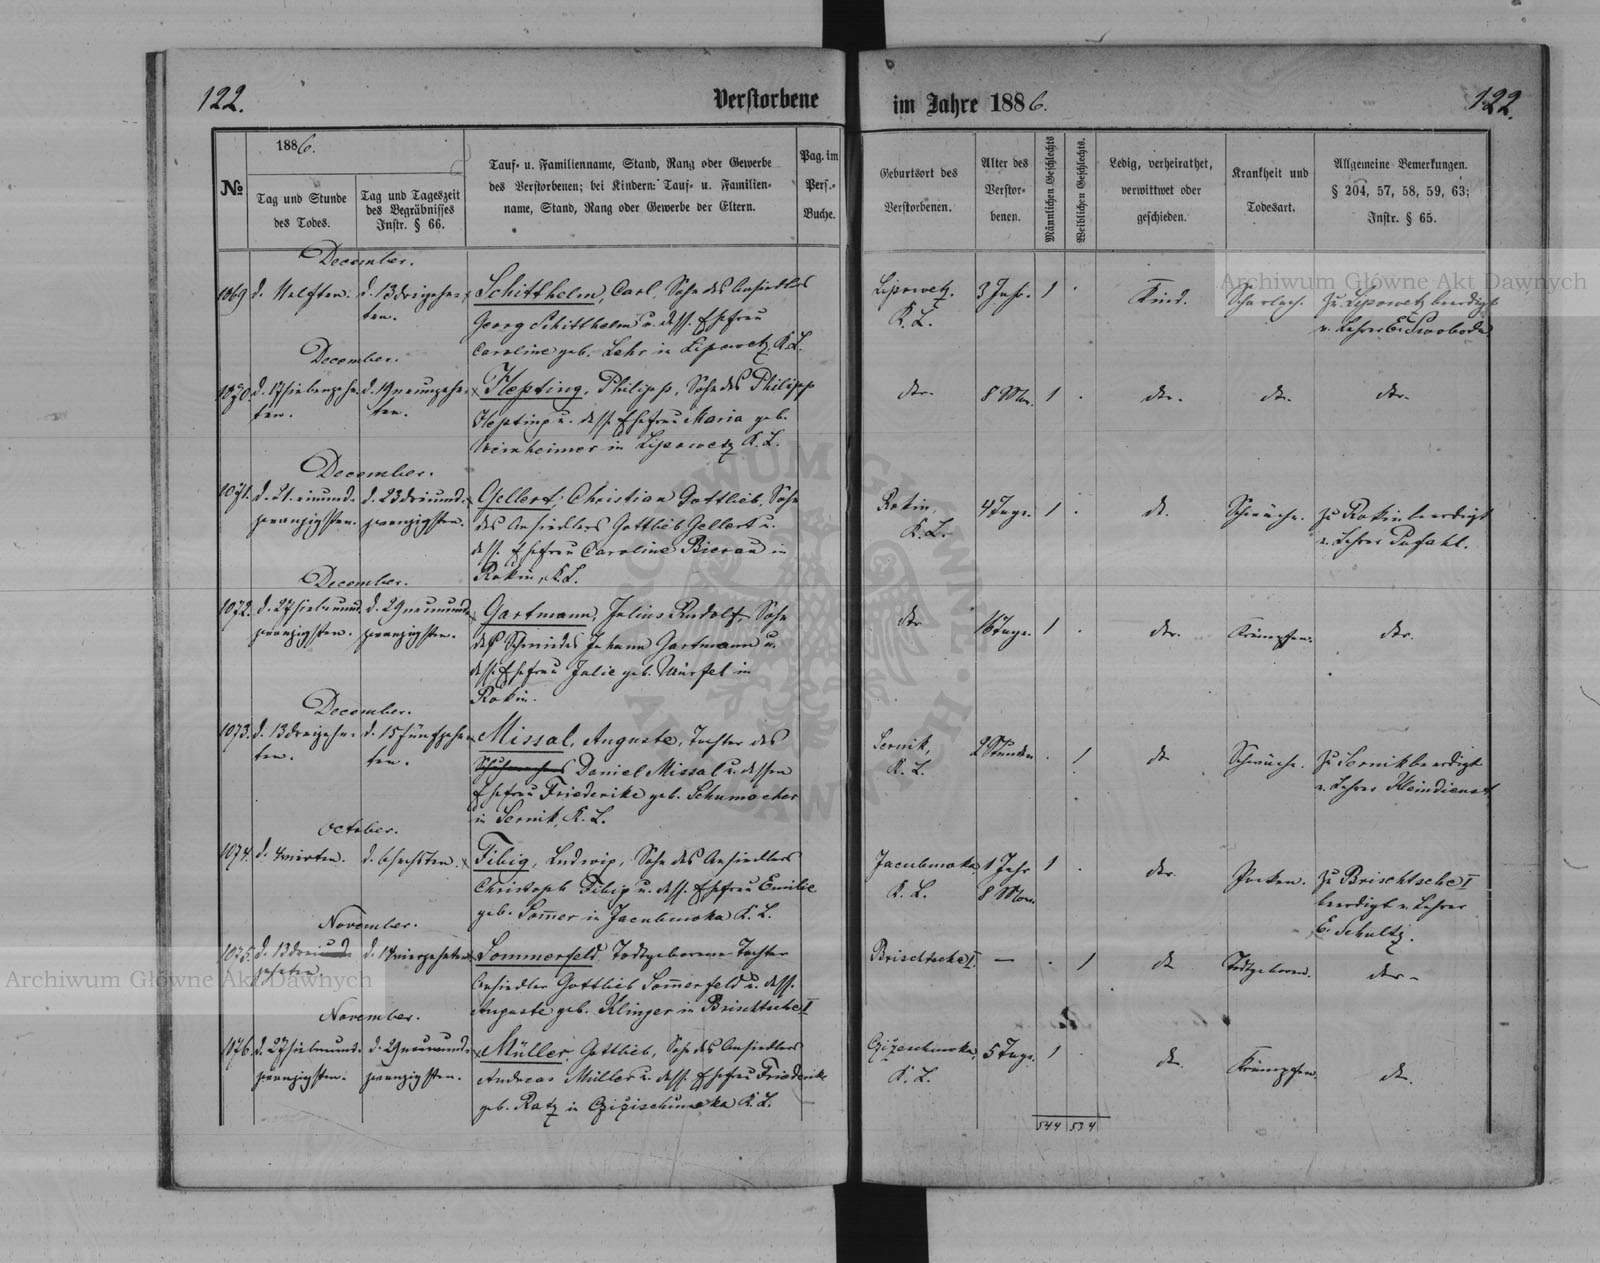 122.
Verstorbene
im Jahre 1886.
122.
№
1886.
Tag und Stunde
des Todes.
Tag und Tageszeit
des Begräbnisses
Instr. § 66.
Tauf- u. Familienname, Stand, Rang oder Gewerbe
des Verstorbenen; bei Kindern: Tauf- u. Familien-
name, Stand, Rang oder Gewerbe der Eltern.
Pag. im
Pers.-
Buche.
Geburtsort des
Verstorbenen.
Alter des
Verstor-
benen.
Männlichen Geschlechts
Weiblichen Geschlechts.
Ledig, verheirathet,
verwittwet oder
geschieden.
Krankheit und
Todesart.
Allgemeine Bemerkungen.
§ 204, 57, 58, 59, 63;
Instr. § 65.
December.
1069 d. 11elften. d. 13 dreizehn-
ten.
Schitthelm, Carl, Sohn des Ansiedlers
Georg Schitthelm u. dess. Ehefrau
Caroline geb. Lehr in Lipowetz K. L.
Lipowetz.
K. L.
3 Jahr. 1
Kind.
Scharlach.
Zu Lipowetz beerdigt
v. Lehrer E. Swoboda
December.
1070. d. 17 siebenzehn-
ten.
d. 19 neunzehn-
ten.
Hepting, Philipp, Sohn des Philipp
Hepting u. dess. Ehefrau Maria geb.
Weinheimer in Lipowetz K. L.
dto. 8 Mon. 1 dto. dto. dto.
December.
1071. d. 21. einund-
zwanzigsten.
d. 23 dreiund-
zwanzigsten.
Gellert, Christian Gottlieb, Sohn
des Ansiedlers Gottlieb Gellert u.
dess. Ehefrau Caroline Bierau in
Rokin, K. L.
Rokin,
K. L.
4 Tage. 1 dto. Schwäche.
Zu Rokin beerdigt
v. Lehrer Pufahl.
December.
1072. d. 27 siebenund-
zwanzigsten.
d. 29 neunund-
zwanzigsten.
Gartmann, Julius Rudolf, Sohn
des Schmiedes Johann Gartmann u.
dess. Ehefrau Julie geb. Würfel in
Rokin.
dto 16 Tage. 1 dto. Krämpfen. dto.
December.
1073. d. 13 dreizehn-
ten.
d. 15 fünfzehn-
ten.
Missal, Auguste, Tochter des
Daniel Missal u. dessen
Ehefrau Friederike geb. Schumacher
in Sernik, K. L.
Sernik,
K. L.
2 Stunden 1 dto Schwäche.
Zu Sernik beerdigt
v. Lehrer Kleindienst
October.
1074. d. 4 vierten. d. 6 sechsten.
Fibig, Ludwig, Sohn des Ansiedlers
Christoph Fibig u. dess. Ehefrau Emilie
geb. Sommer in Jacubuwka K. L.
Jacubuwka
K. L.
1 Jahr
8 Mon.
1 dto. Pocken.
Zu Brischtsche I
beerdigt v. Lehrer
E. Schultz.
November.
1075. d. 13 drei
zehnten.
d. 14 vierzehnten
Sommerfeld, Todtgeborene Tochter
Ansiedler Gottlieb Sommerfeld u. dess.
Auguste geb. Klinger in Brischtsche I
Brischtsche I. — 1 dto Todtgeboren. dto.
November.
1076. d. 27 siebenund-
zwanzigsten.
d. 29 neunund-
zwanzigsten.
Müller, Gottlieb, Sohn des Ansiedlers
Andreas Müller u. dess. Ehefrau Friederike
geb. Ratz in K. L.
K. L.
5 Tage. 1 dto. Krämpfen. dto.
544 534
Archiwum Główne Akt Dawnych
Archiwum Główne Akt Dawnych